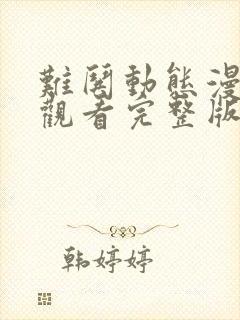 難鬨動態漫
觀看完整版
韩婷婷